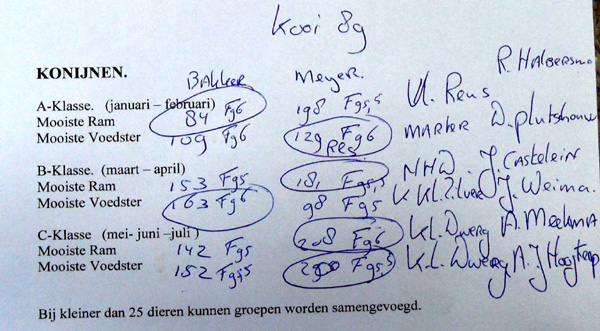 Kooi 89
KONIJNEN. Bakker Meyer. R. Halbersma
A-Klasse. (januari – februari) 198 Fg5,5 Vl. Reus
Mooiste Ram 84 Fg6 Marter D.
Mooiste Voedster 109 Fg6 129 Fg6
Res
B-Klasse. (maart – april) 181 NHD. J. Castelein
Mooiste Ram 153 Fg5 K Kl. Zilver J. Weima.
Mooiste Voedster 163 Fg6 98 Fg5
C-Klasse (mei- juni –juli ) 208 Fg6 Kl. Dwerg A. Meekma
Mooiste Ram 142 Fg5 K.L. Dwerg A.J
Mooiste Voedster 152 Fg5,5 Fg5,5
Bij kleiner dan 25 dieren kunnen groepen worden samengevoegd.